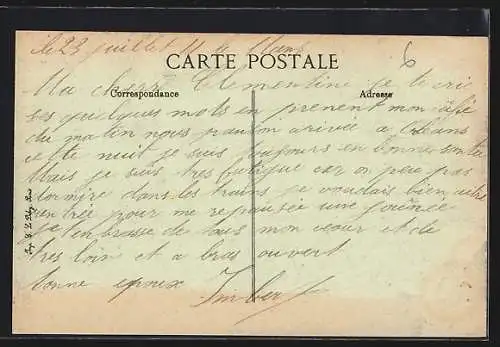 le 23 juillet 11 h Mans
6
CARTE POSTALE
Correspondance
Adresse
Ma chere Clementine je te cris
ses quelques mots en prenent mon cafe
du matin nous pauson arivée a Orleans
cette nuit je suis toujours en bonne sante
Mais je suis tres fatigue car on peu pas
dormire dans les trains je voudais bien etre
entree pour me reposée une journée
je tenbrasse de tous mon ceour et de
tres loin et a bras ouvert
bonne epoux Imbert